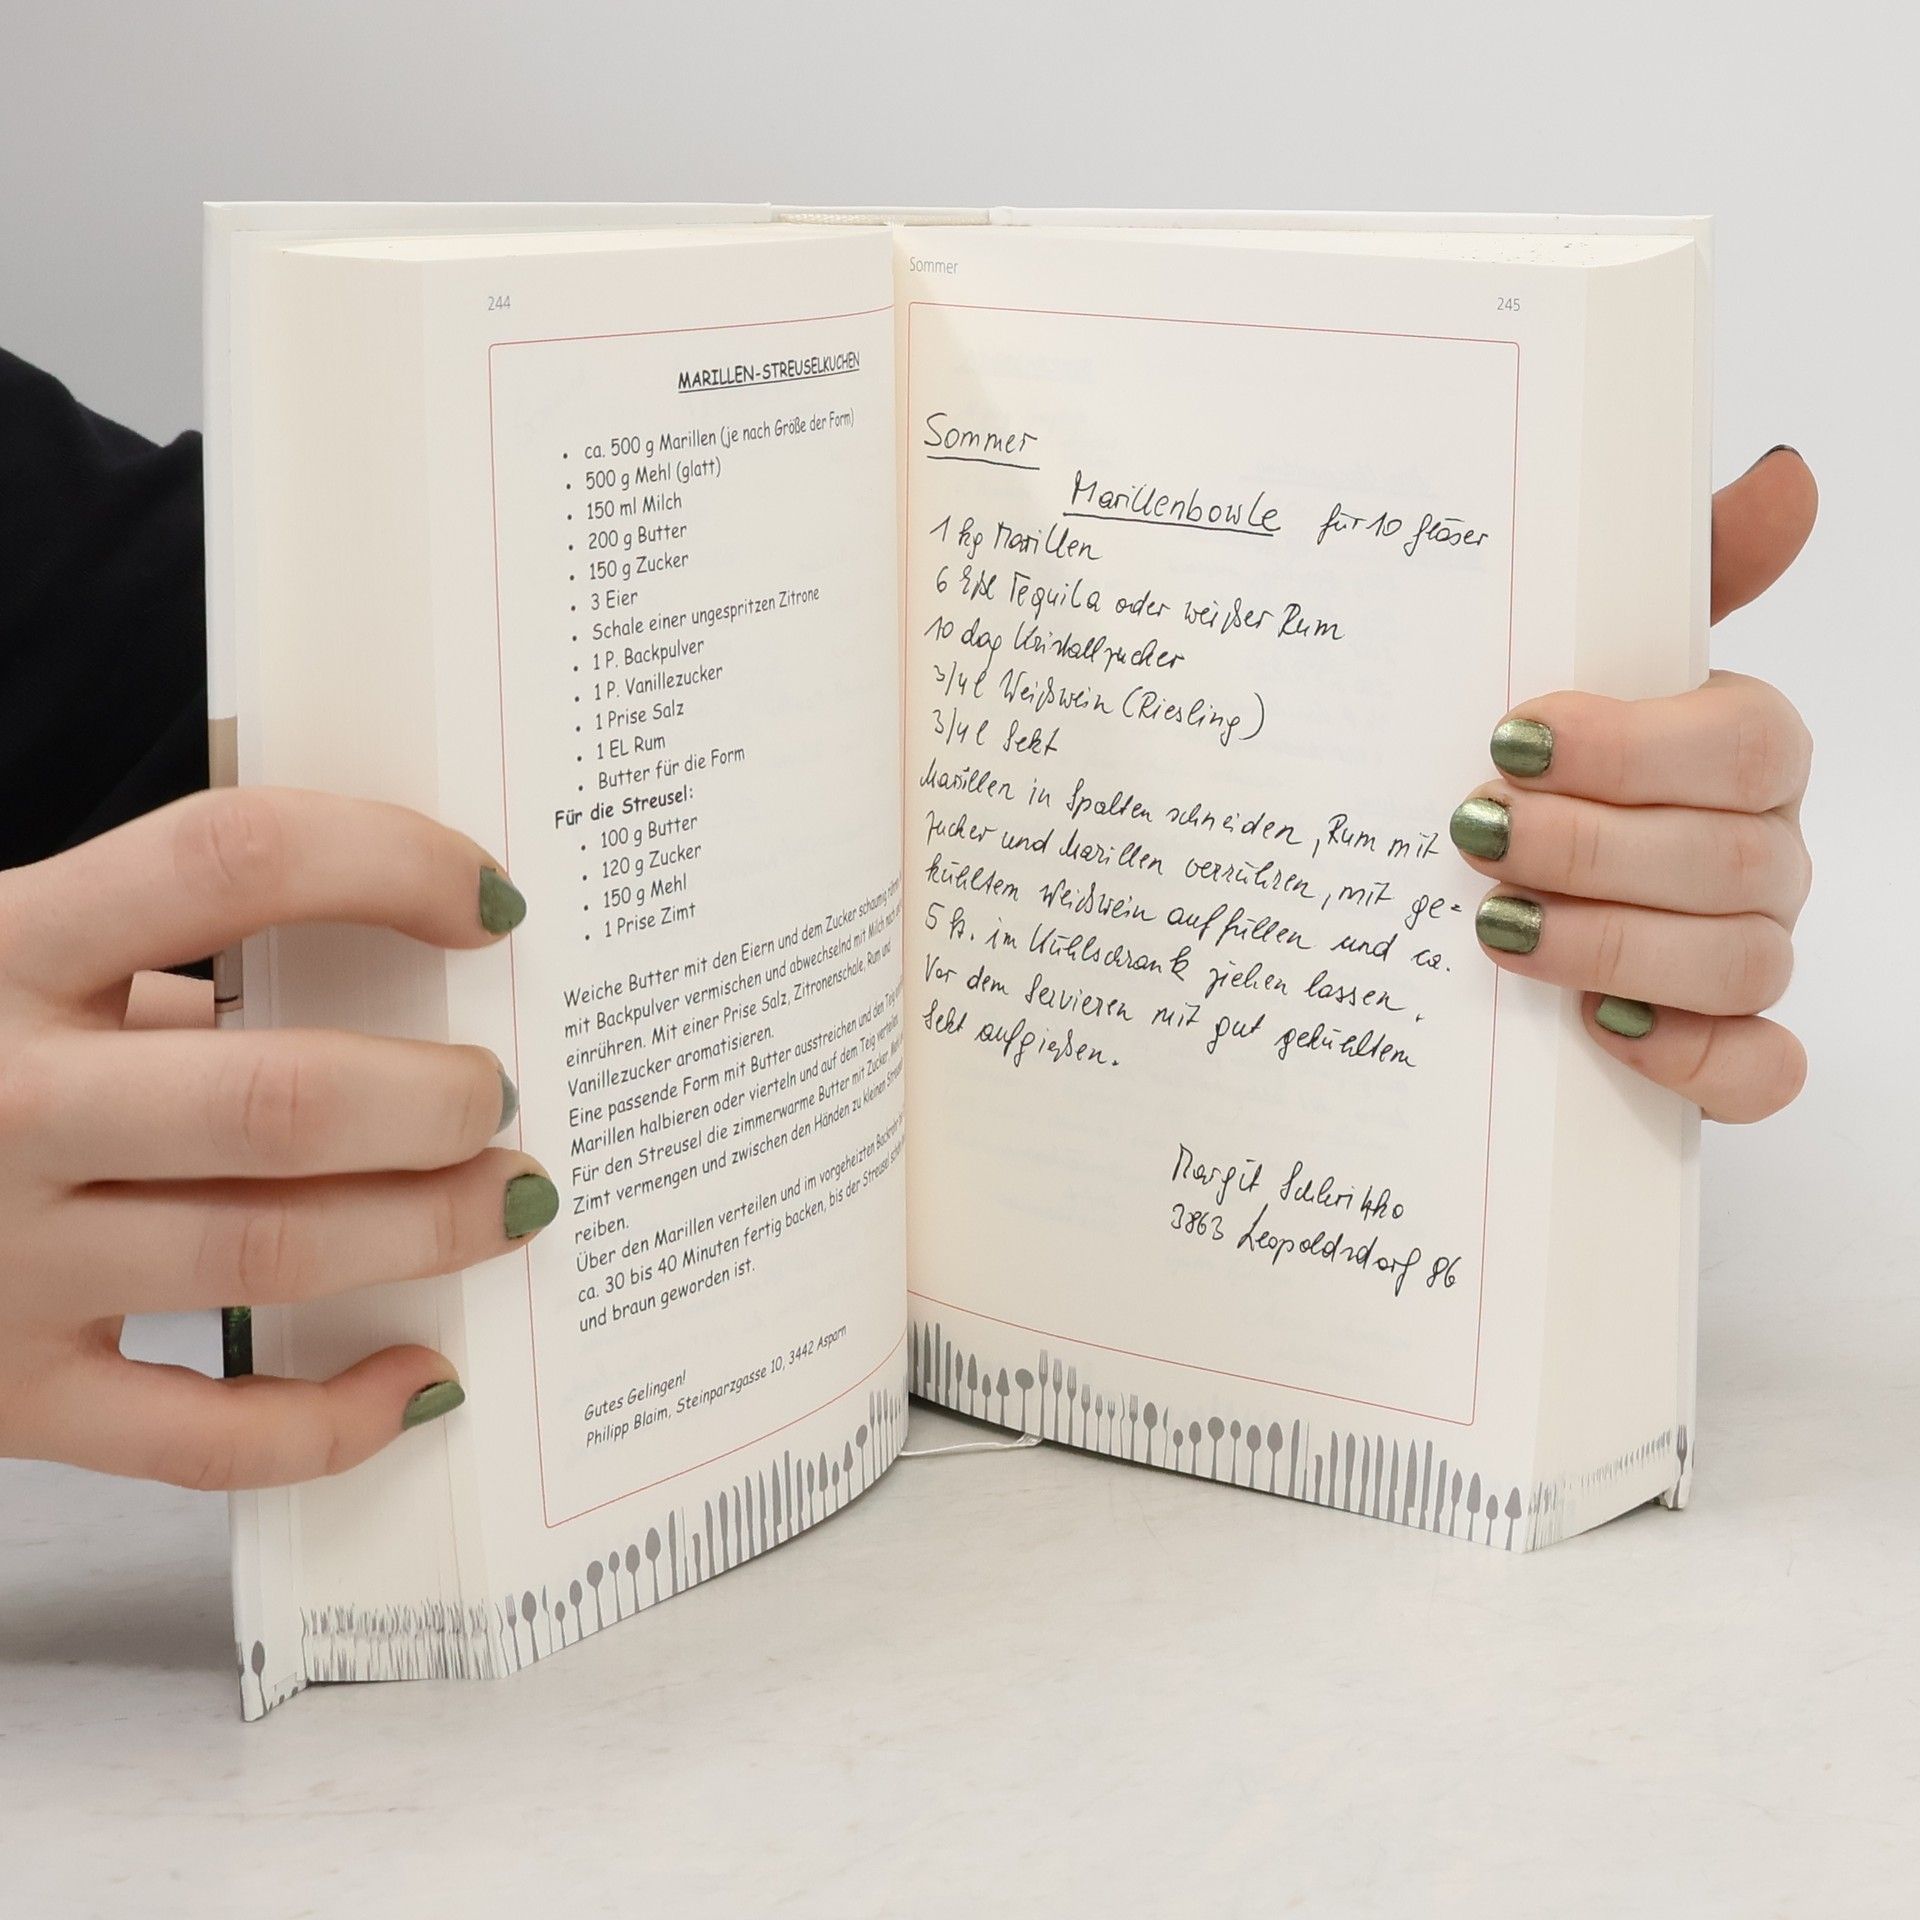 244
MARILLEN-STREUSELKUCHEN
• ca. 500 g Marillen (je nach Größe der Form)
• 500 g Mehl (glatt)
• 150 ml Milch
• 200 g Butter
• 150 g Zucker
• 3 Eier
• Schale einer ungespritzen Zitrone
• 1 P. Backpulver
• 1 P. Vanillezucker
• 1 Prise Salz
• 1 EL Rum
• Butter für die Form
Für die Streusel:
• 100 g Butter
• 120 g Zucker
• 150 g Mehl
• 1 Prise Zimt
Weiche Butter mit den Eiern und dem Zucker schaumig
mit Backpulver vermischen und abwechselnd mit Milch nach
einrühren. Mit einer Prise Salz, Zitronenschale, Rum und
Vanillezucker aromatisieren.
Eine passende Form mit Butter ausstreichen und den Teig
Marillen halbieren oder vierteln und auf dem Teig verteilen.
Für den Streusel die zimmerwarme Butter mit Zucker,
Zimt vermengen und zwischen den Händen zu kleinen
reiben.
Über den Marillen verteilen und im vorgeheizten
ca. 30 bis 40 Minuten fertig backen, bis der Streusel
und braun geworden ist.
Gutes Gelingen!
Philipp Blaim, Steinparzgasse 10, 3442 Asparn
Sommer
245
Sommer
Marillenbowle für 10 Gläser
1 kg Marillen
6 Eßl Tequila oder weißer Rum
10 dag Kristallzucker
3/4 l Weißwein (Riesling)
3/4 l Sekt
Marillen in Spalten schneiden, Rum mit
Zucker und Marillen verrühren, mit ge=
kühltem Weißwein auffüllen und ca.
5 h. im Kühlschrank ziehen lassen.
Vor dem Servieren mit gut gekühltem
Sekt aufgießen.
Margit
3863 Leopoldsdorf 86